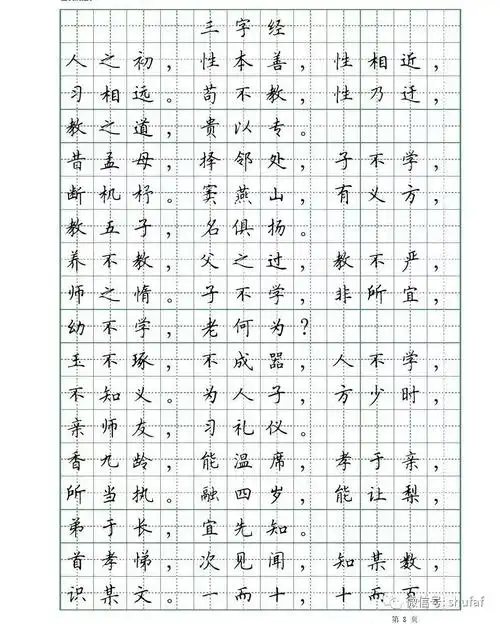 三字经
人之初，性本善，性相近，
习相远。苟不教，性乃迁，
教之道，贵以专。
昔孟母，择邻处，子不学，
断机杼。窦燕山，有义方，
教五子，名俱扬。
养不教，父之过，教不严，
师之惰。子不学，非所宜，
幼不学，老何为？
玉不琢，不成器，人不学，
不知义。为人子，方少时，
亲师友，习礼仪。
香九龄，能温席，孝于亲，
所当执。融四岁，能让梨，
弟于长，宜先知。
首孝悌，次见闻，知某数，
识某文。一而十，十而百
微信号: shufaf
第 3 页